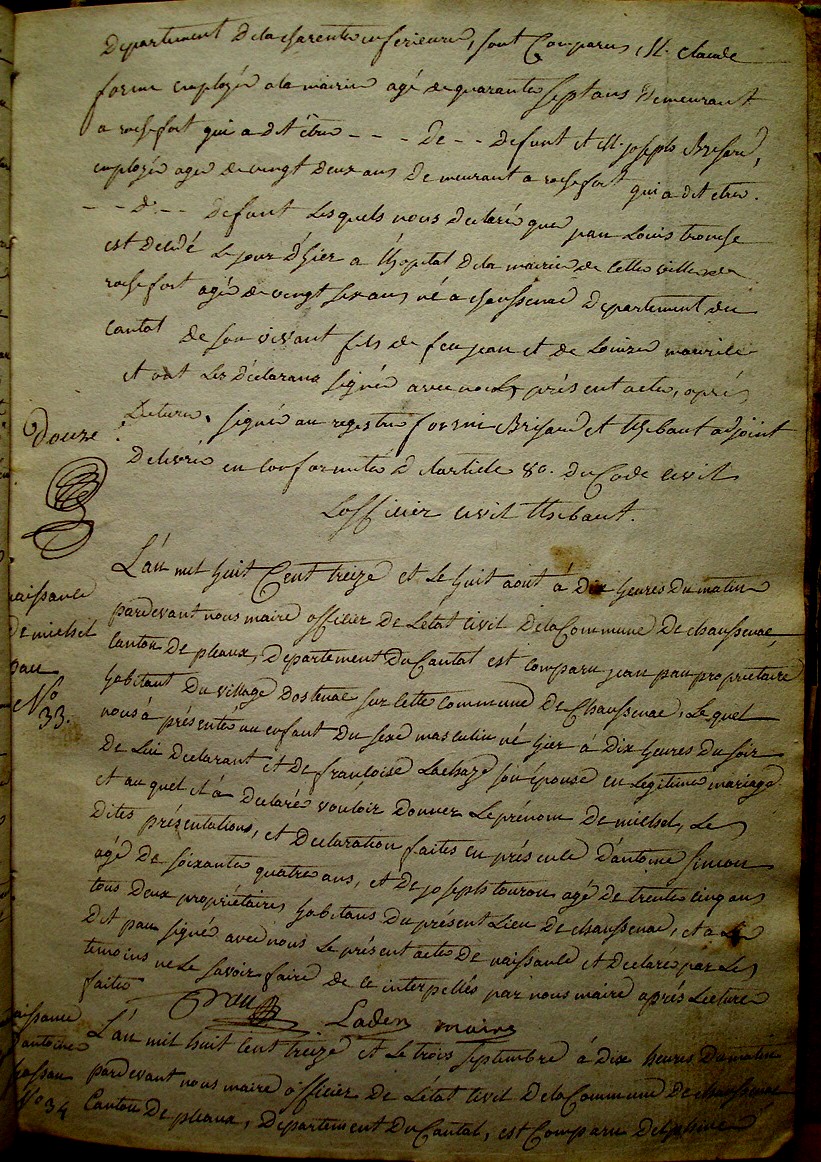 Departement Dela charente inferieure, sont Comparus M. Claude
forme employé a la mairie agé de quarante sept ans Demeurant
a rochefort qui a dit être - - - De - - Defunt et M. joseph Brisard,
employé agé de vingt deux ans Demeurant a rochefort qui a dit etre.
- - d. - - Defunt Lesquels nous Declaré que jean Louis
est Decedé Le jour D'hier a L'hopital Dela marine de Cette ville de
rochefort agé de vingt six ans né a chaussenac Departement du
Cantal de son vivant fils de feu jean et de Louise
et ont Les Déclarans signé avec nous Le présent acte, aprés
Lecture. signé au registre forme Brisard et thebaut adjoint
Douze
Delivré en conformité d L'article 80. du Code Civil
L'officier civil thebaut.
L'an mil huit Cent treize et Le huit aout à Dix heures Du matin
naissance
De michel
pau
No
33.
pardevant nous maire officier De L'état Civil Dela Commune De chaussenac,
Canton De pleaux, Departement Du Cantal est comparu jean pau propriétaire
habitant Du village Dostenac sur Cette Commune De Chaussenac, Lequel
nous à présenté un enfant Du sexe masculin né hier à Dix heures Du soir
De Lui Declarant et De françoise Lachaze son épouse en Legitime mariage
et au quel il à Declaré vouloir Donner Le prénom De michel, Les
Dites présentations, et Declaration faites en présence D'antoine simon
agé De soixante quatre ans, et De joseph tourou agé De trente cinq ans
tous Deux propriétaires habitans Du présent Lieu De chaussenac, et a Le
Dit pau signé avec nous Le présent acte De naissance et Declaré par Les
temoins ne Le savoir faire De ce interpellés par nous maire aprés Lecture
faite
Pau Laden maire
naissance
D'antoine
No 34
L'an mil huit Cent treize et Le trois septembre à Dix heures Du matin
pardevant nous maire officier De L'état Civil Dela Commune De chaussenac
Canton De pleaux, Departement Du Cantal, est Comparu